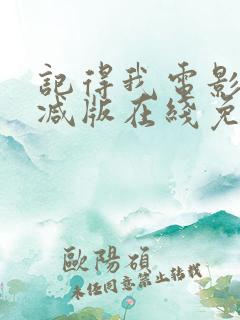 記得我電影
減版在綫免
歐陽碩
未經同意禁止轉載